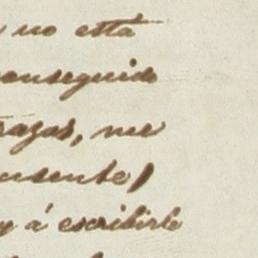 no está
conseguido
razas, me
ausente)
á escribirle